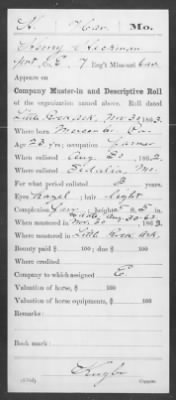 H. 7 Cav. Mo.
Henry Hickman
Pvt, Co. E, 7 Reg't Missouri Cav
Appears on
Company Muster-in and Descriptive Roll
of the organization named above. Roll dated
Little Rock Ark, Nov 30, 1863.
Where born
Age 23 y'rs; occupation Farmer
When enlisted Aug 30, 1862.
Where enlisted Sedalia, Mo
For what period enlisted 3 years.
Eyes Hazel; hair Light
Complexion Fair; height 5 ft. 5 in.
When mustered in Nov. 30, 1863.
Where mustered in Little Rock Ark.
Bounty paid $ 100; due $ 100
Where credited
Company to which assigned E
Valuation of horse, $ 100
Valuation of horse equipments, $ 100
Remarks:
Book mark:
Copyist.